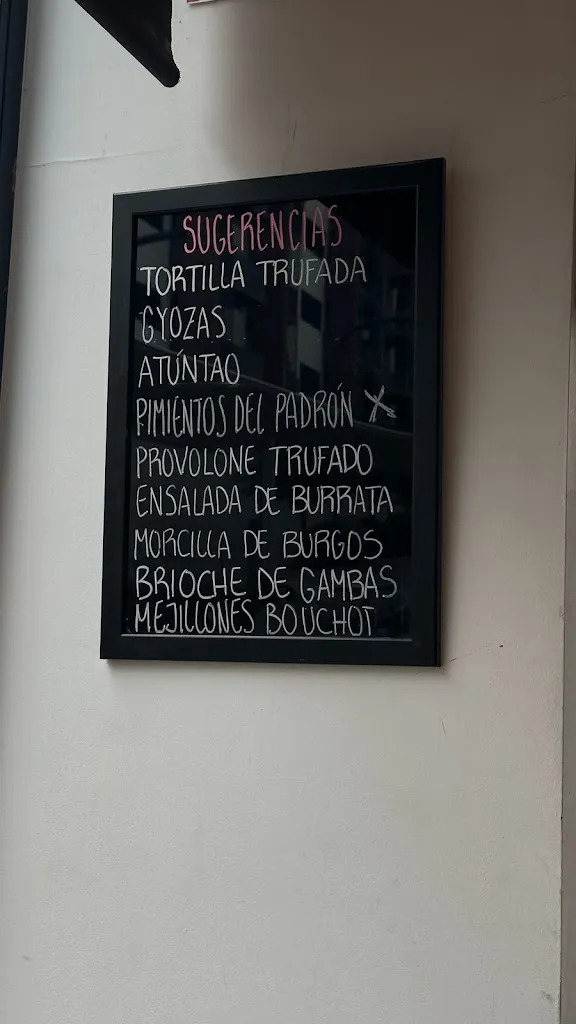 SUGERENCIAS
TORTILLA TRUFADA
GYOZAS
ATÚNTAO
PIMIENTOS DEL PADRÓN X
PROVOLONE TRUFADO
ENSALADA DE BURRATA
MORCILLA DE BURGOS
BRIOCHE DE GAMBAS
MEJILLONES BOUCHOT